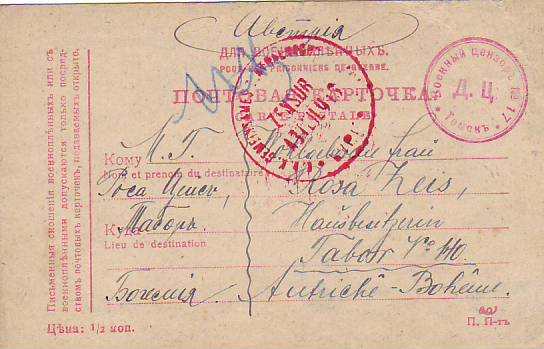 Австрія
ДЛЯ ВОЕННОПЛѢННЫХЪ.
POUR PRISONNIERS DE GUERRE.
ПОЧТОВАЯ КАРТОЧКА
CARTE POSTALE
ZENSUR
Военный Цензоръ № 17
Д. Ц.
Томскъ
Письменныя сношенія военноплѣнныхъ или съ
военноплѣнными допускаются только посред-
ствомъ почтовыхъ карточекъ, подаваемыхъ открыто.
Кому М. Г. Wohlgeboren Frau
Nom et prénom du destinataire
Роса Цейсъ, Rosa Zeis,
Hausbesitzerin
Куда Таборъ
Lieu de destination
Tabor No 110.
Богемія. Autriche-Bohême.
Цѣна: 1/2 коп.
П. П-тъ